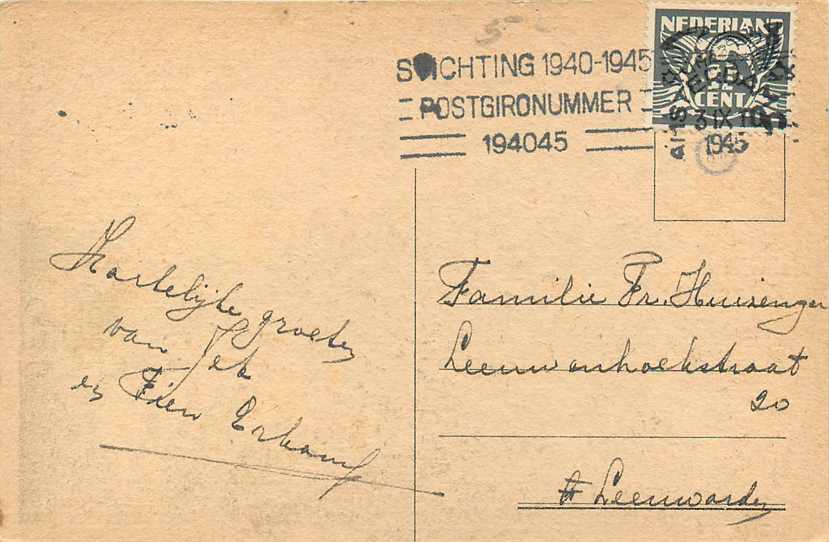 STICHTING 1940-1945
POSTGIRONUMMER
194045
NEDERLAND
CENT
3 IX
1945
Hartelijke groeten
van Jet
en Fien
Familie Fr. Huizenga
Leeuwenhoekstraat
20
Leeuwarden